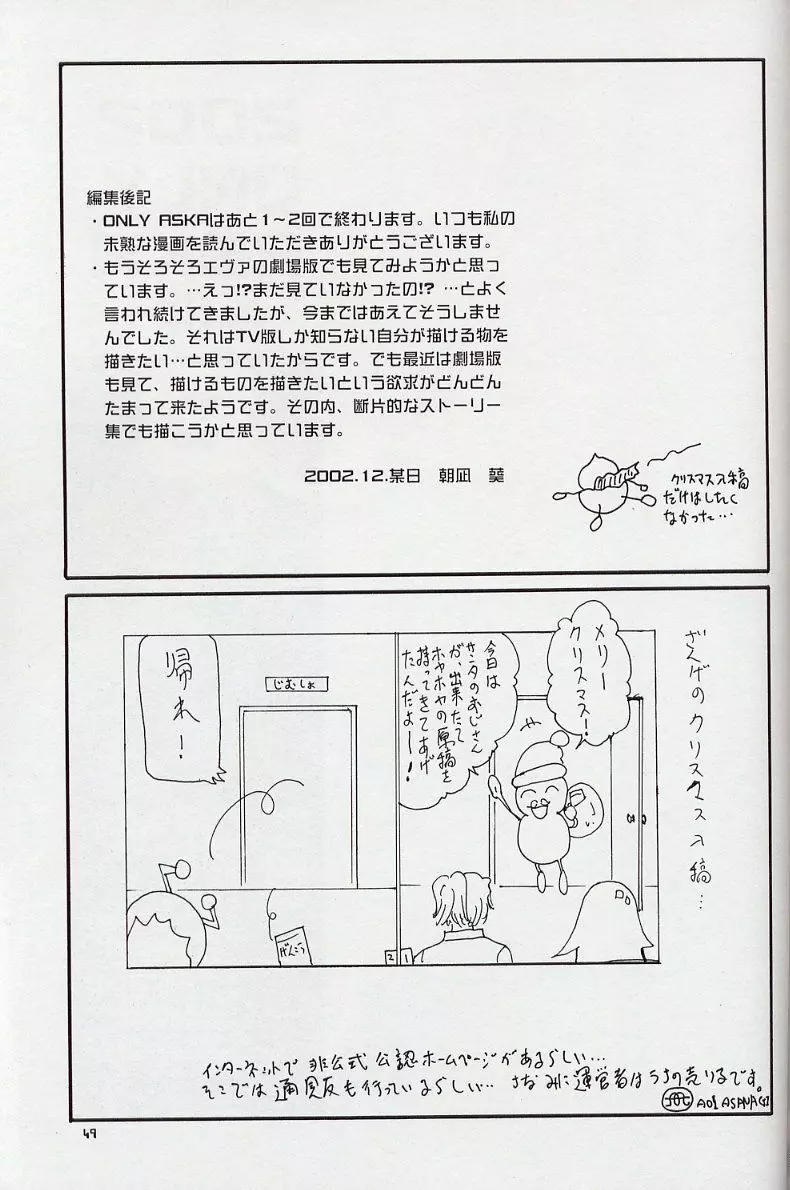 編集後記
・ONLY ASKAはあと1〜2回で終わります。いつも私の
未熟な漫画を読んでいただきありがとうございます。
・もうそろそろエヴァの劇場版でも見てみようかと思っ
ています。…えっ!?まだ見ていなかったの!? …とよく
言われ続けてきましたが、今まではあえてそうしませ
んでした。それはTV版しか知らない自分が描ける物を
描きたい…と思っていたからです。でも最近は劇場版
も見て、描けるものを描きたいという欲求がどんどん
たまって来たようです。その内、断片的なストーリー
集でも描こうかと思っています。
2002.12.某日 朝凪 葵
クリスマス入稿
だけはしたく
なかった…
ざんげのクリスマス入稿…
メリー
クリスマス!
今日は
サンタのおじさん
が、出来たて
ホヤホヤの原稿を
持ってきてあげ
たんだよー!
1
じむしょ
帰れ!
げんこう
2
インターネットで 非公式 公認ホームページがあるらしい…
そこでは通販も行っているらしい… ちなみに運営者はうちの売り子です。
AOI ASANAGI
49